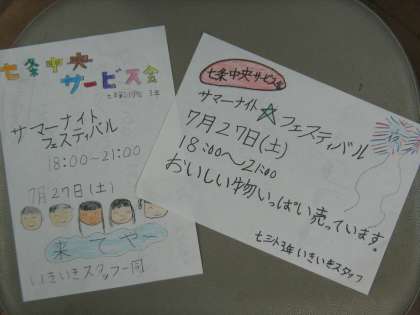 七条中央
サービス会
3年
サマーナイト
フェスティバル
18:00～21:00
7月27日(土)
来てや～
いきいきスタッフ一同
七条中央サービス会
サマーナイト☆フェスティバル
7月27日(土)
18:00～21:00
おいしい物いっぱい売っています。
七三小3年いきいきスタッフ